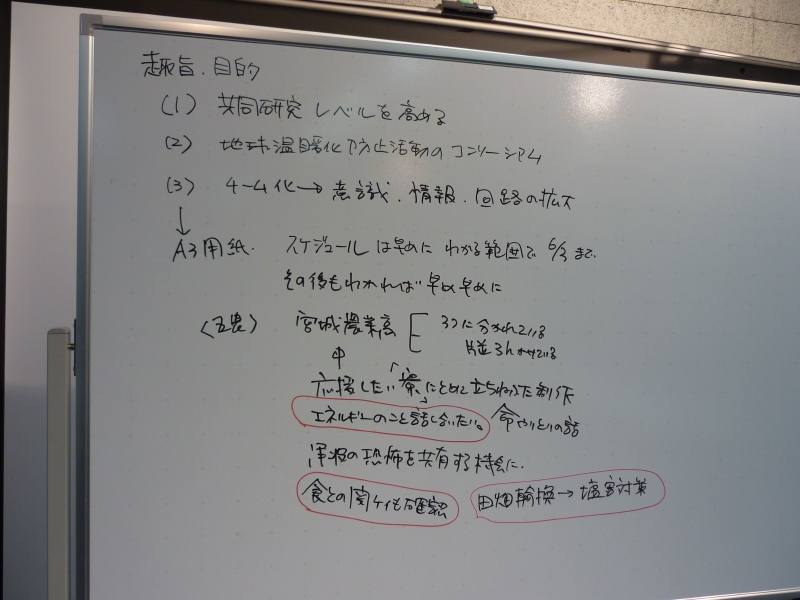 趣旨.目的
(1) 共同研究 レベルを高める
(2) 地球温暖化防止活動のコンソーシアム
(3) 4-4化→意識.情報.回路の拡大
↓
A3用紙. スケジュールは早めに わかる範囲で 6/3まで.
その後もわかれば早め早めに
〈五農〉 宮城農業高 [ 3つに分かれている
応援したい 寮にとめて立ちねぷた制作
エネルギーのこと話し合いたい。 命やりとりの話
津波の恐怖を共有する機会に.
食との関ケイも確認 田畑輪換→塩害対策